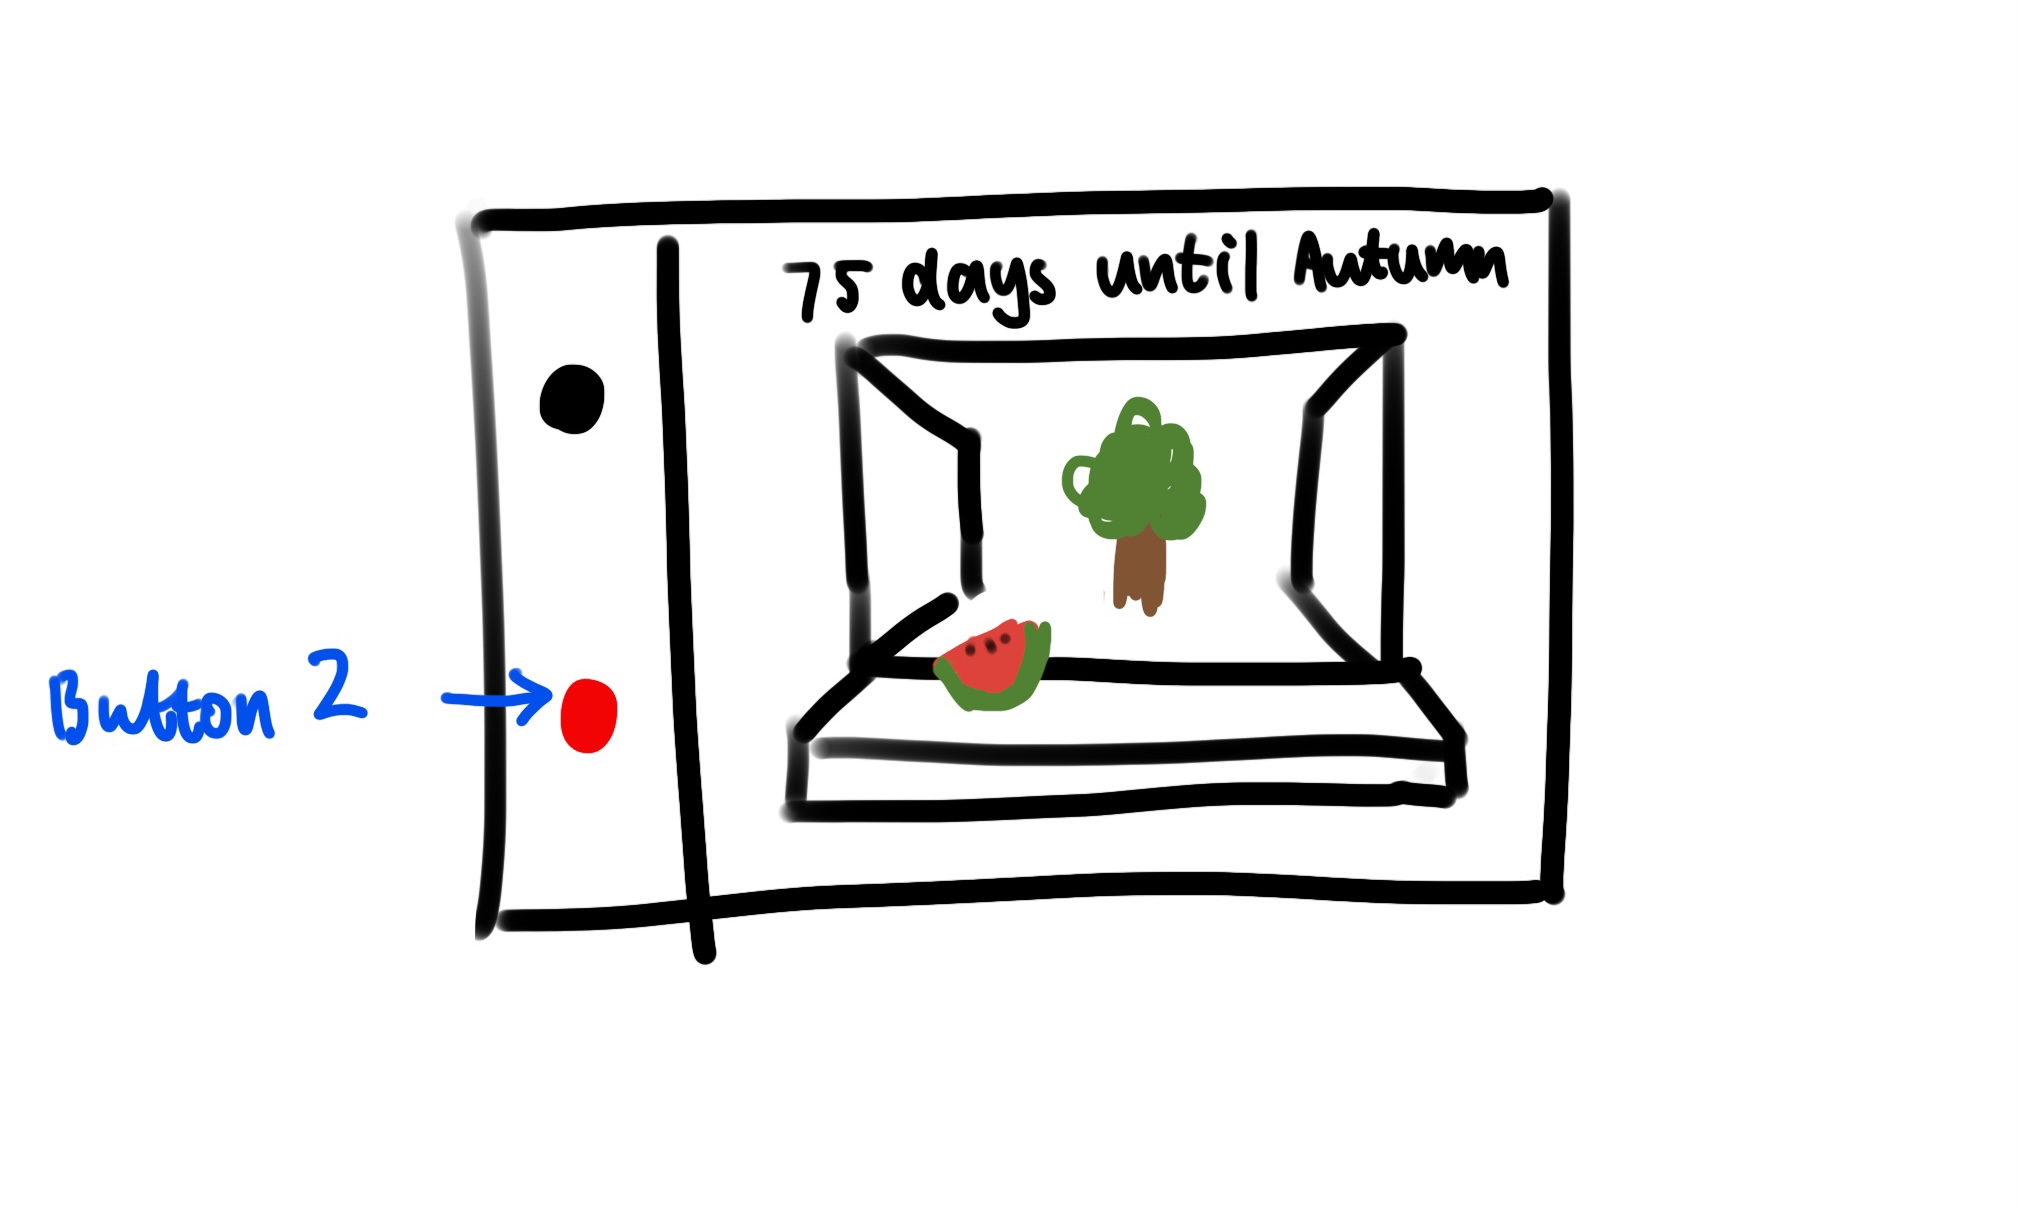 75 days until Autumn
Button 2